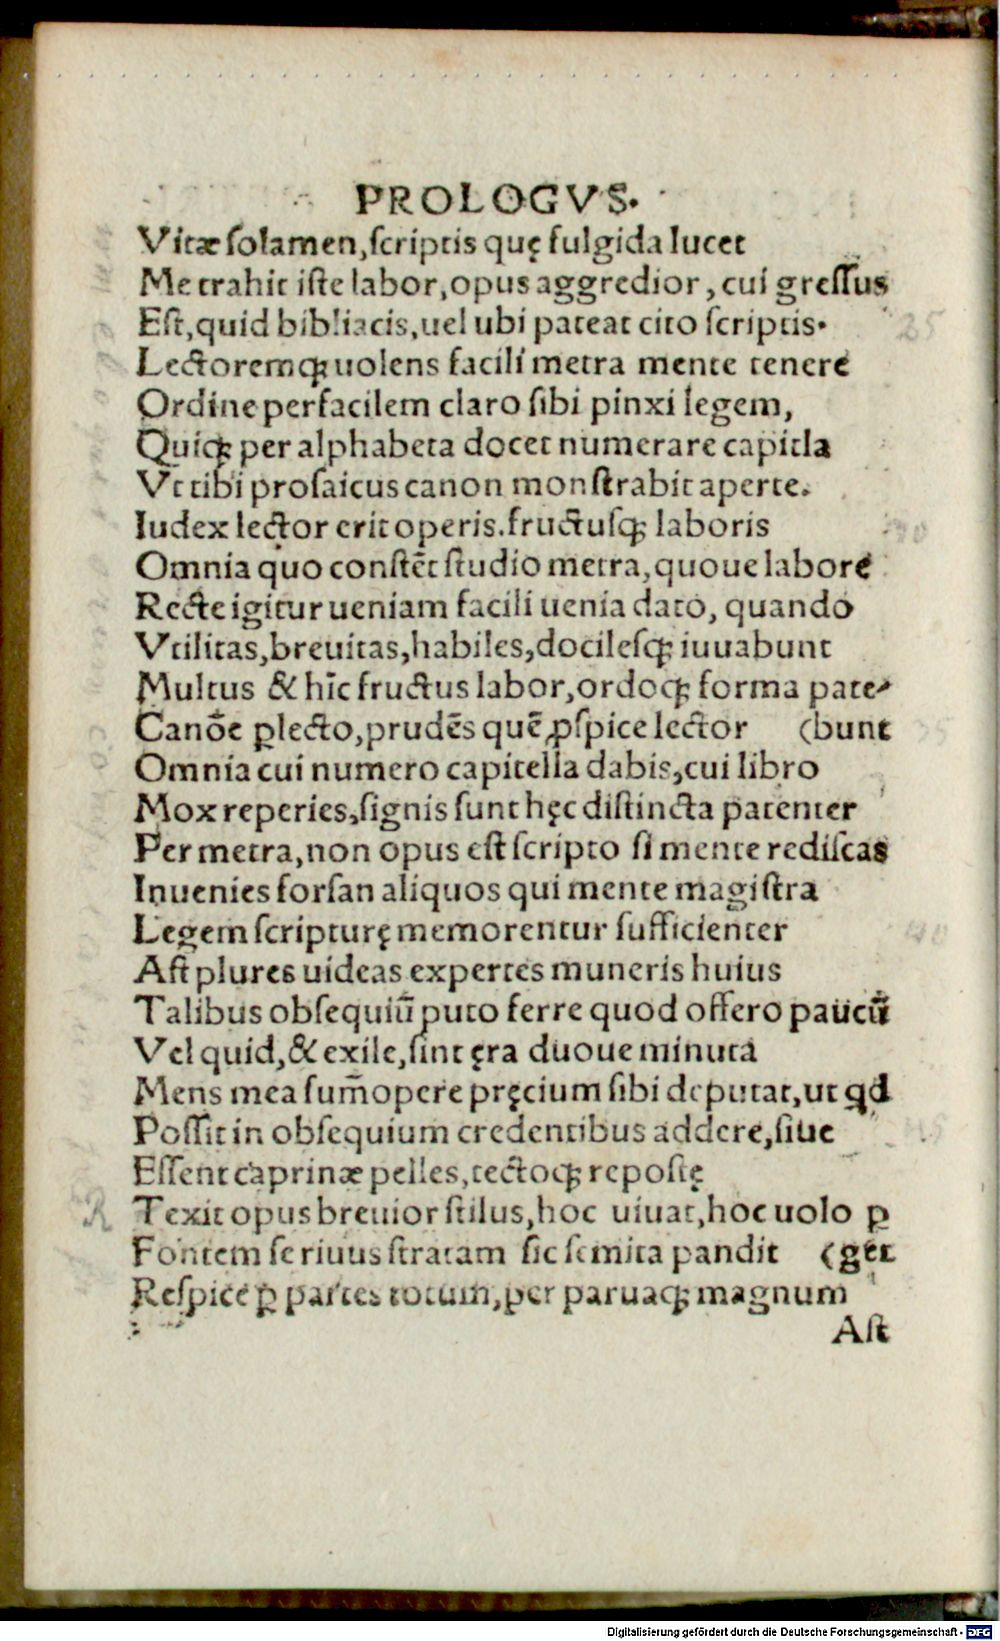 PROLOGVS.
Vitæ ſolamen, ſcriptis quę fulgida lucet
Me trahit iſte labor, opus aggredior, cui greſſus
Eſt, quid bibliacis, uel ubi pateat cito ſcriptis.
Lectoremqꝫ uolens facili metra mente tenere
Ordine perfacilem claro ſibi pinxi legem,
Quicqꝫ per alphabeta docet numerare capitla
Vt tibi proſaicus canon monſtrabit aperte.
Iudex lector erit operis. fructuſqꝫ laboris
Omnia quo conſtēt ſtudio metra, quoue labore
Recte igitur ueniam facili uenia dato, quando
Vtilitas, breuitas, habiles, docileſqꝫ iuuabunt
Multus & hīc fructus labor, ordoqꝫ forma pate-
Canōe ꝑlecto, prudēs quē ꝓſpice lector (bunt
Omnia cui numero capitella dabis, cui libro
Mox reperies, ſignis ſunt hęc diſtincta patenter
Per metra, non opus eſt ſcripto ſi mente rediſcas
Inuenies forſan aliquos qui mente magiſtra
Legem ſcripturę memorentur ſufficienter
Aſt plures uideas expertes muneris huius
Talibus obſequiū puto ferre quod offero paucū
Vel quid, & exile, ſint ęra duoue minuta
Mens mea ſum̄opere pręcium ſibi deputat, ut qd
Poſſit in obſequium credentibus addere, ſiue
Eſſent caprinæ pelles, tectoqꝫ repoſtę
Texit opus breuior ſtilus, hoc uiuat, hoc uolo ꝑ
Fontem ſe riuus ſtratam ſic ſemita pandit (get
Reſpice ꝑ partes totum, per paruaqꝫ magnum
Aſt
Digitalisierung gefördert durch die Deutsche Forschungsgemeinschaft - DFG